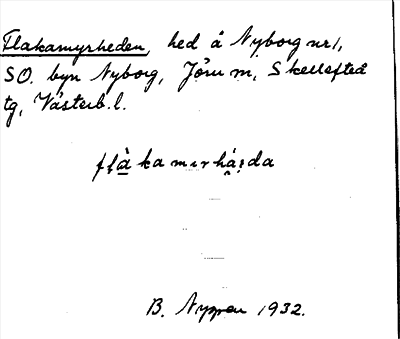 Flakamyrheden, hed å Nyborg nr 1,
SO. byn Nyborg, Jörn sn, Skellefteå
tg, Västerb. l.
B. 1932.